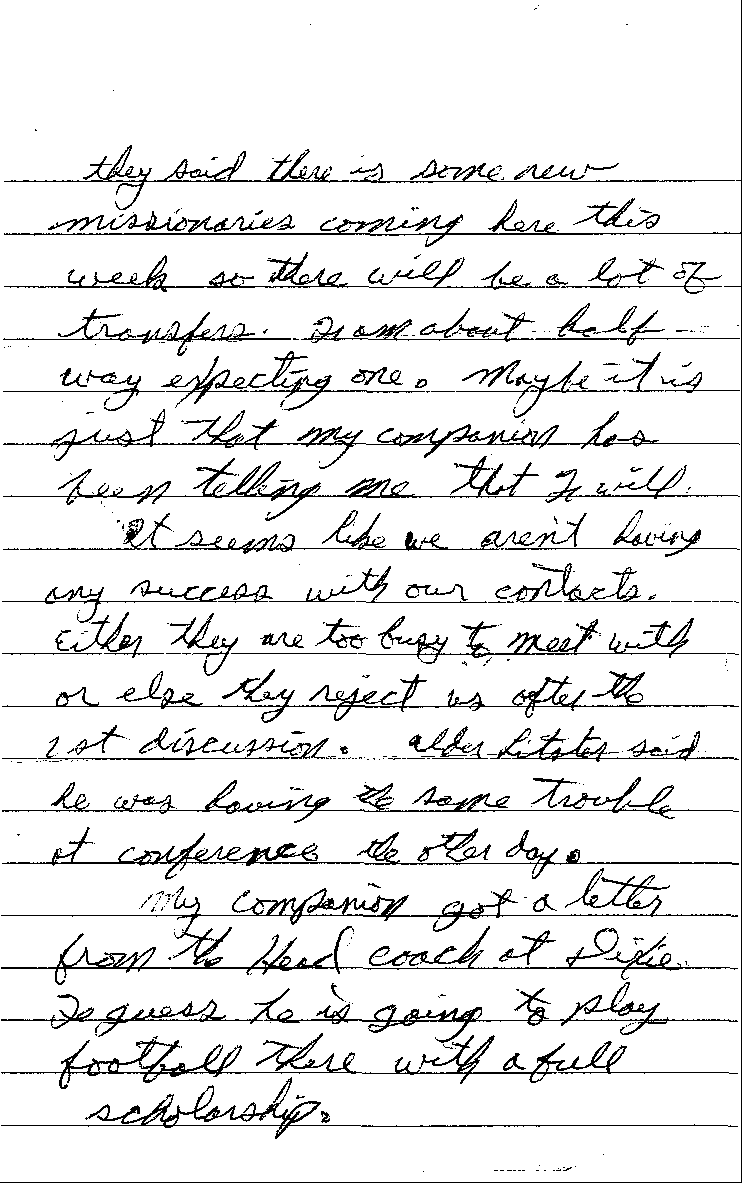 they said there is some new
missionaries coming here this
week so there will be a lot of
transfers. I am about half
way expecting one. Maybe it is
just that my companion has
been telling me that I will.
It seems like we aren't having
any success with our contacts.
Either they are too busy to meet with
or else they reject us after the
1st discussion. Elder Litster said
he was having the same trouble
at conference the other day.
My companion got a letter
from the Head coach at Dixie
I guess he is going to play
football there with a full
scholarship.